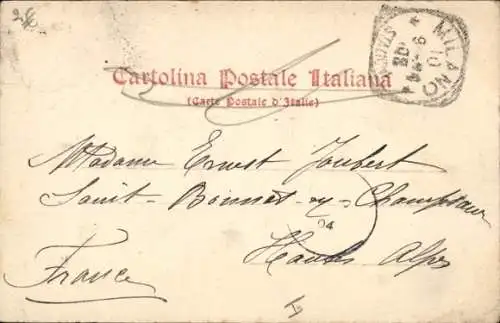 Cartolina Postale Italiana
(Carte Postale d'Italie)
MILANO
Madame Ernest Joubert
Saint-Bonnet-en-Champsaur
04
Hautes Alpes
France